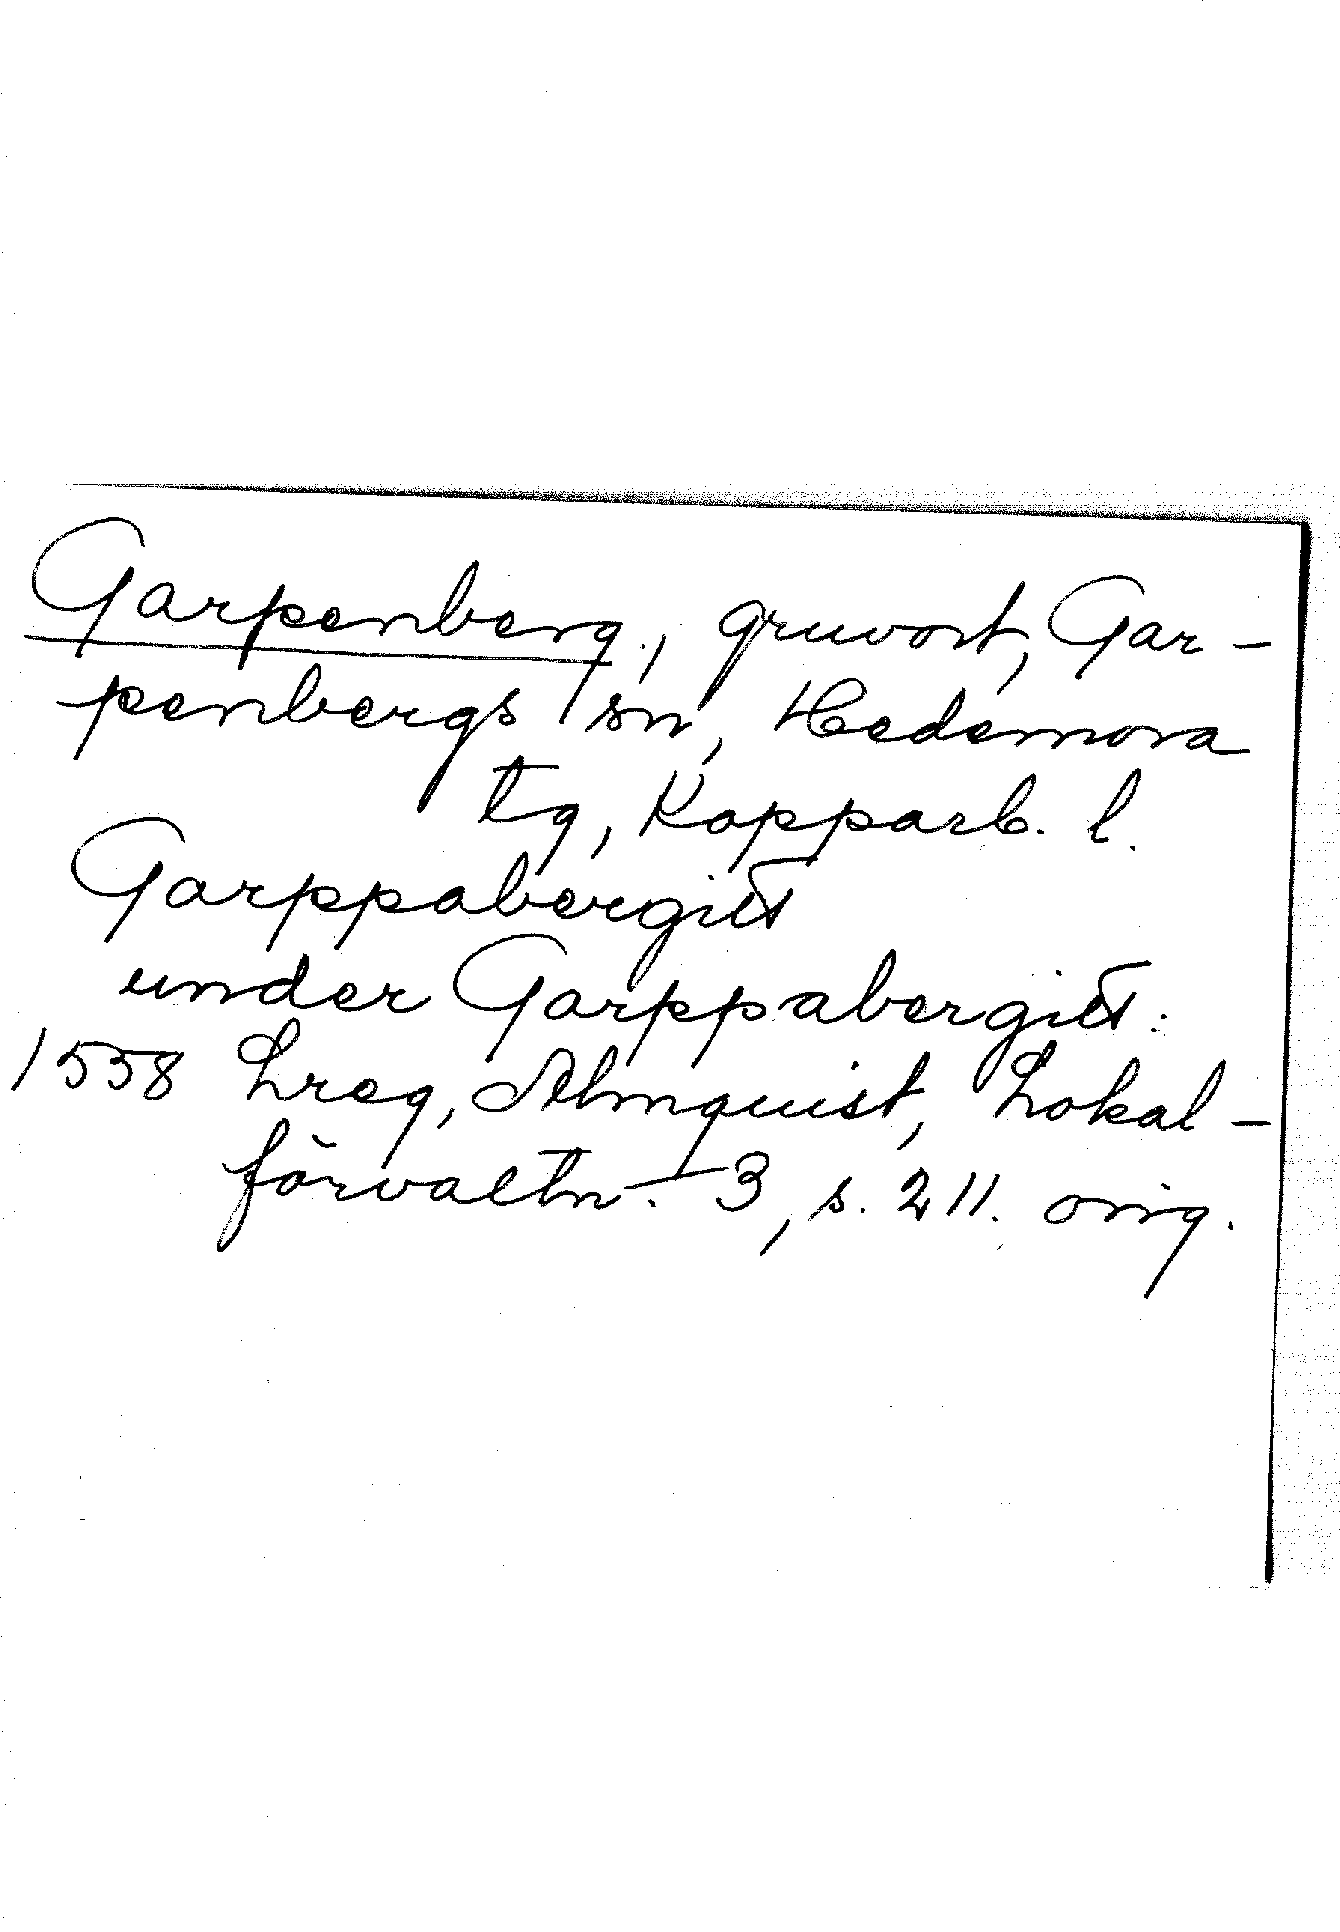 Garpenberg, gruvort, Gar-
penbergs sn, Hedemora
tg, Kopparb. l.
Garppabergitt
under Garppabergitt.
1558 Lreg, Almquist, Lokal-
förvaltn. 3, s. 211. orig.